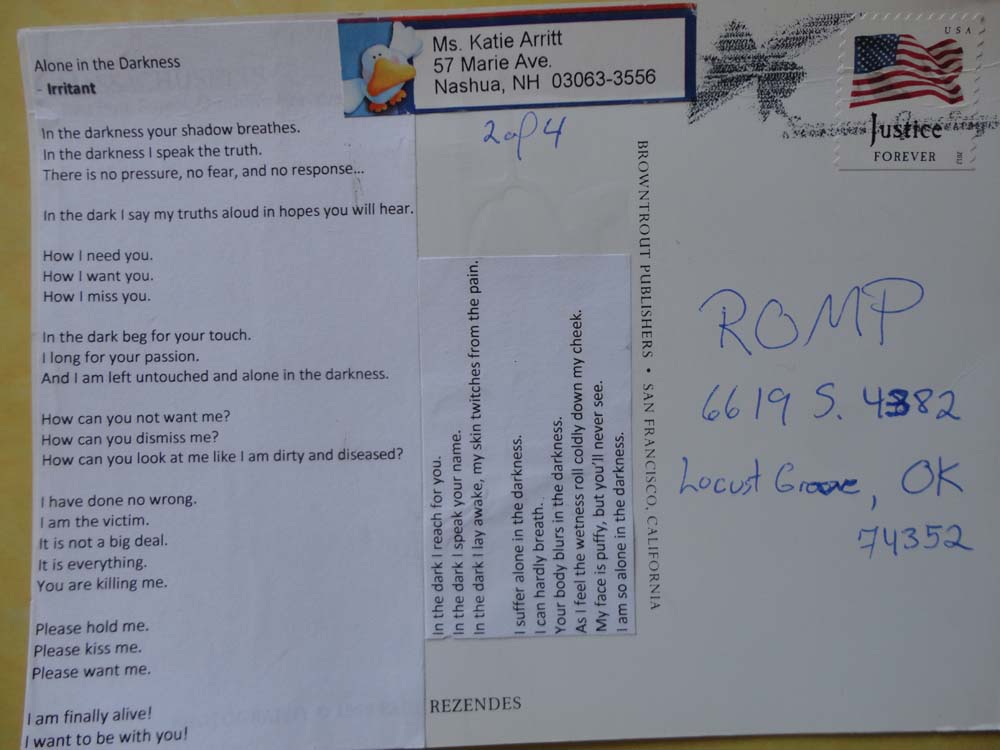 Alone in the Darkness
- Irritant
In the darkness your shadow breathes.
In the darkness I speak the truth.
There is no pressure, no fear, and no response...
In the dark I say my truths aloud in hopes you will hear.
How I need you.
How I want you.
How I miss you.
In the dark beg for your touch.
I long for your passion.
And I am left untouched and alone in the darkness.
How can you not want me?
How can you dismiss me?
How can you look at me like I am dirty and diseased?
I have done no wrong.
I am the victim.
It is not a big deal.
It is everything.
You are killing me.
Please hold me.
Please kiss me.
Please want me.
I am finally alive!
I want to be with you!
In the dark I reach for you.
In the dark I speak your name.
In the dark I lay awake, my skin twitches from the pain.
I suffer alone in the darkness.
I can hardly breath.
Your body blurs in the darkness.
As I feel the wetness roll coldly down my cheek.
My face is puffy, but you'll never see.
I am so alone in the darkness.
Ms. Katie Arritt
57 Marie Ave.
Nashua, NH 03063-3556
2 of 4
BROWNTROUT PUBLISHERS • SAN FRANCISCO, CALIFORNIA
REZENDES
USA
Justice
FOREVER
2012
ROMP
6619 S. 4382
Locust Grove, OK
74352